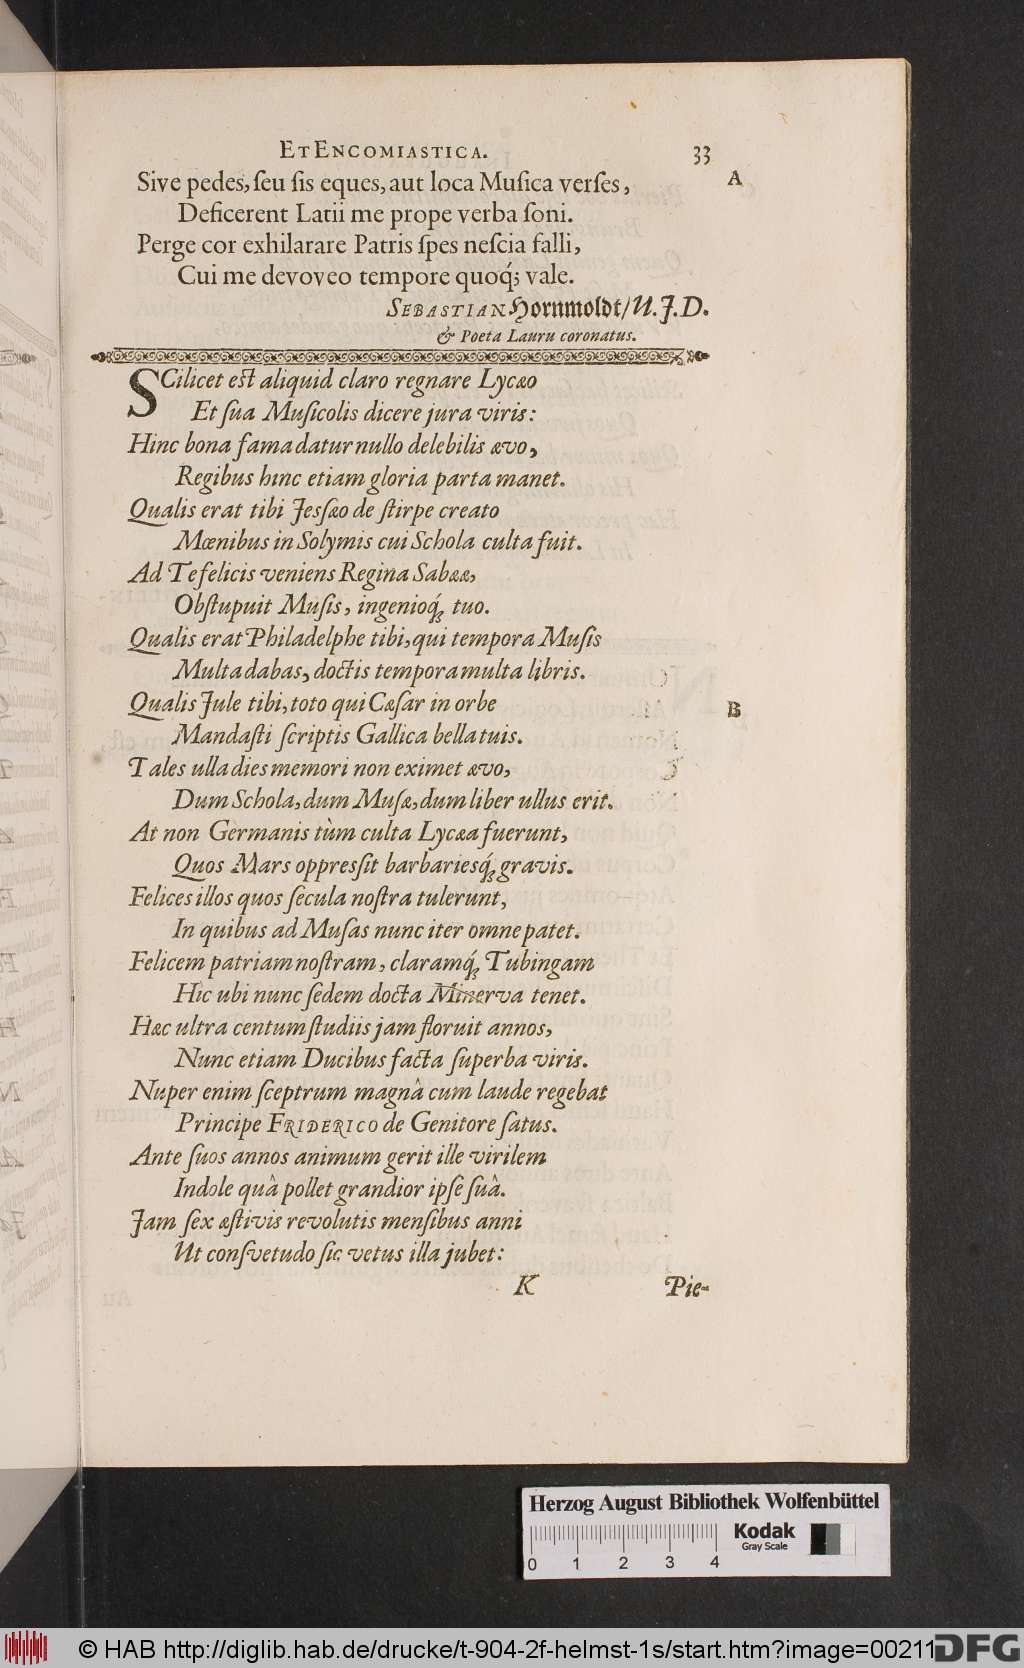 ET ENCOMIASTICA. 33
Sive pedes, ſeu ſis eques, aut loca Muſica verſes, A
Deficerent Latii me prope verba ſoni.
Perge cor exhilarare Patris ſpes neſcia falli,
Cui me devoveo tempore quoq́; vale.
SEBASTIAN Hornmoldt/U. J. D.
& Poeta Lauru coronatus.
SCilicet eſt aliquid claro regnare Lycæo
Et ſua Muſicolis dicere jura viris:
Hinc bona fama datur nullo delebilis ævo,
Regibus hinc etiam gloria parta manet.
Qualis erat tibi Jeſſæo de ſtirpe creato
Mœnibus in Solymis cui Schola culta fuit.
Ad Te felicis veniens Regina Sabææ,
Obſtupuit Muſis, ingenioq́; tuo.
Qualis erat Philadelphe tibi, qui tempora Muſis
Multa dabas, doctis tempora multa libris.
Qualis Jule tibi, toto qui Cæſar in orbe B
Mandaſti ſcriptis Gallica bella tuis.
Tales ulla dies memori non eximet ævo,
Dum Schola, dum Muſæ, dum liber ullus erit.
At non Germanis tùm culta Lycæa fuerunt,
Quos Mars oppreſſit barbariesq́; gravis.
Felices illos quos ſecula noſtra tulerunt,
In quibus ad Muſas nunc iter omne patet.
Felicem patriam noſtram, claramq́; Tubingam
Hic ubi nunc ſedem docta Minerva tenet.
Hæc ultra centum ſtudiis jam floruit annos,
Nunc etiam Ducibus facta ſuperba viris.
Nuper enim ſceptrum magnâ cum laude regebat
Principe FRIDERICO de Genitore ſatus.
Ante ſuos annos animum gerit ille virilem
Indole quâ pollet grandior ipſe ſuâ.
Jam ſex æſtivis revolutis menſibus anni
Ut conſvetudo ſic vetus illa jubet:
K Pie-
Herzog August Bibliothek Wolfenbüttel
Kodak
Gray Scale
0 1 2 3 4
© HAB http://diglib.hab.de/drucke/t-904-2f-helmst-1s/start.htm?image=00211
DFG